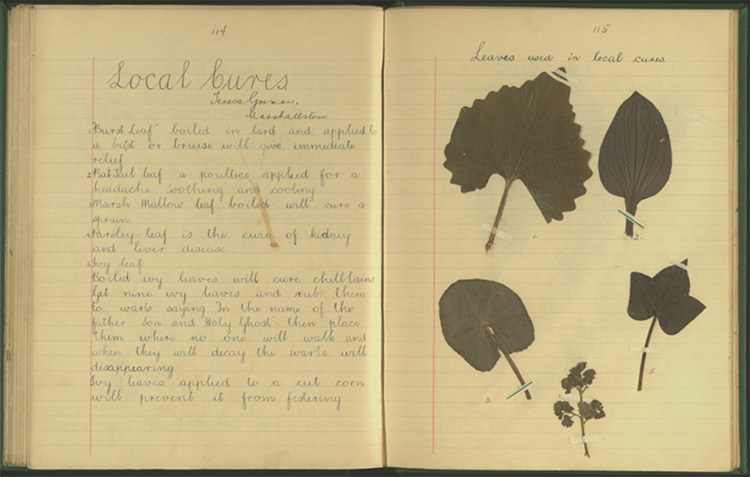 114
Local Cures
Teresa Gorman,
Marshallstown
1 Burst Leaf boiled in lard and applied to
a bust or bruise will give immediate
relief
2 Rat Tail leaf a poultice applied for a
headache soothing and cooling
3 Marsh Mallow leaf boiled will cure a
sprain
4 Parsley leaf is the cure of kidney
and liver disease
5 Ivy leaf
Boiled ivy leaves will cure chilblains
Get nine ivy leaves and rub them
to warts saying "In the name of the
father Son and Holy Ghost" then place
them where no one will walk and
when they will decay the warts will
disappearing
Ivy leaves applied to a cut corn
will prevent it from festering.
115
Leaves used in local cures
1.
2.
3.
5.